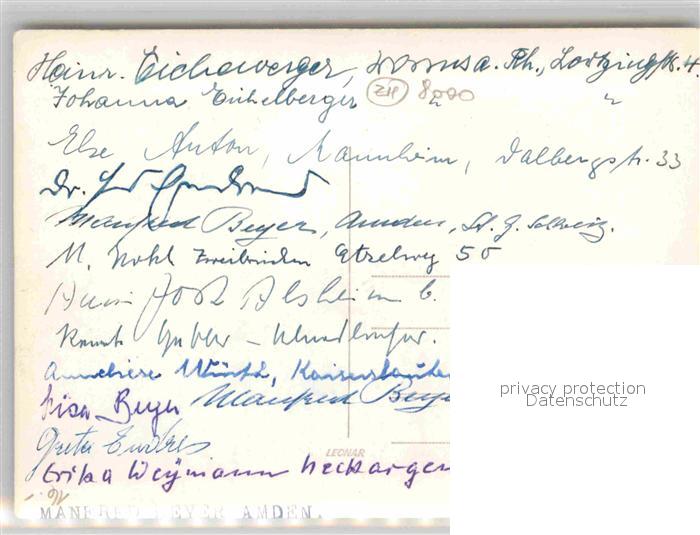 Heinr. Eichelberger, Worms a. Rh., Lortzingstr. 4
Johanna Eichelberger ZH 8000 "
Else Anton, Mannheim, Dalbergstr. 33
Dr.
Manfred Beyer, Amden, St. G. Schweiz.
M. Nohl Zweibrücken Etzelweg 50
Jost Alsheim b.
Anneliese Würtz, Kaiserslauter
Lisa Beyer Manfred Beye
Greta Enders
Erika Weymann Neckargem
LEONAR
MANFRED BEYER AMDEN.
privacy protection
Datenschutz